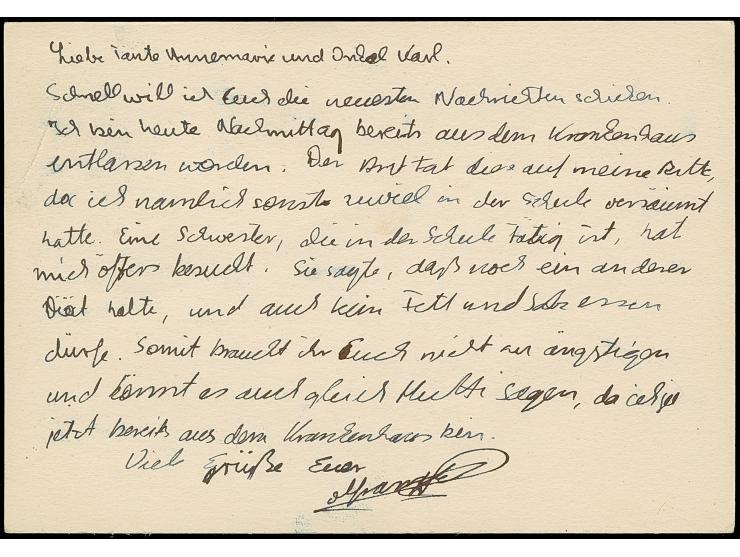 Liebe Tante Annemarie und Onkel Karl.
Schnell will ich Euch die neuesten Nachrichten schicken.
Ich bin heute Nachmittag bereits aus dem Krankenhaus
entlassen worden. Der Arzt tat dies auf meine Bitte,
da ich nämlich sonst zuviel in der Schule versäumt
hätte. Eine Schwester, die in der Schule tätig ist, hat
mich öfters besucht. Sie sagte, daß noch ein anderer
Diät halte, und auch kein Fett und Salz essen
dürfe. Somit braucht ihr Euch nicht zu ängstigen
und könnt es auch gleich Mutti sagen, da ich ja
jetzt bereits aus dem Krankenhaus bin.
Viele Grüße Euer